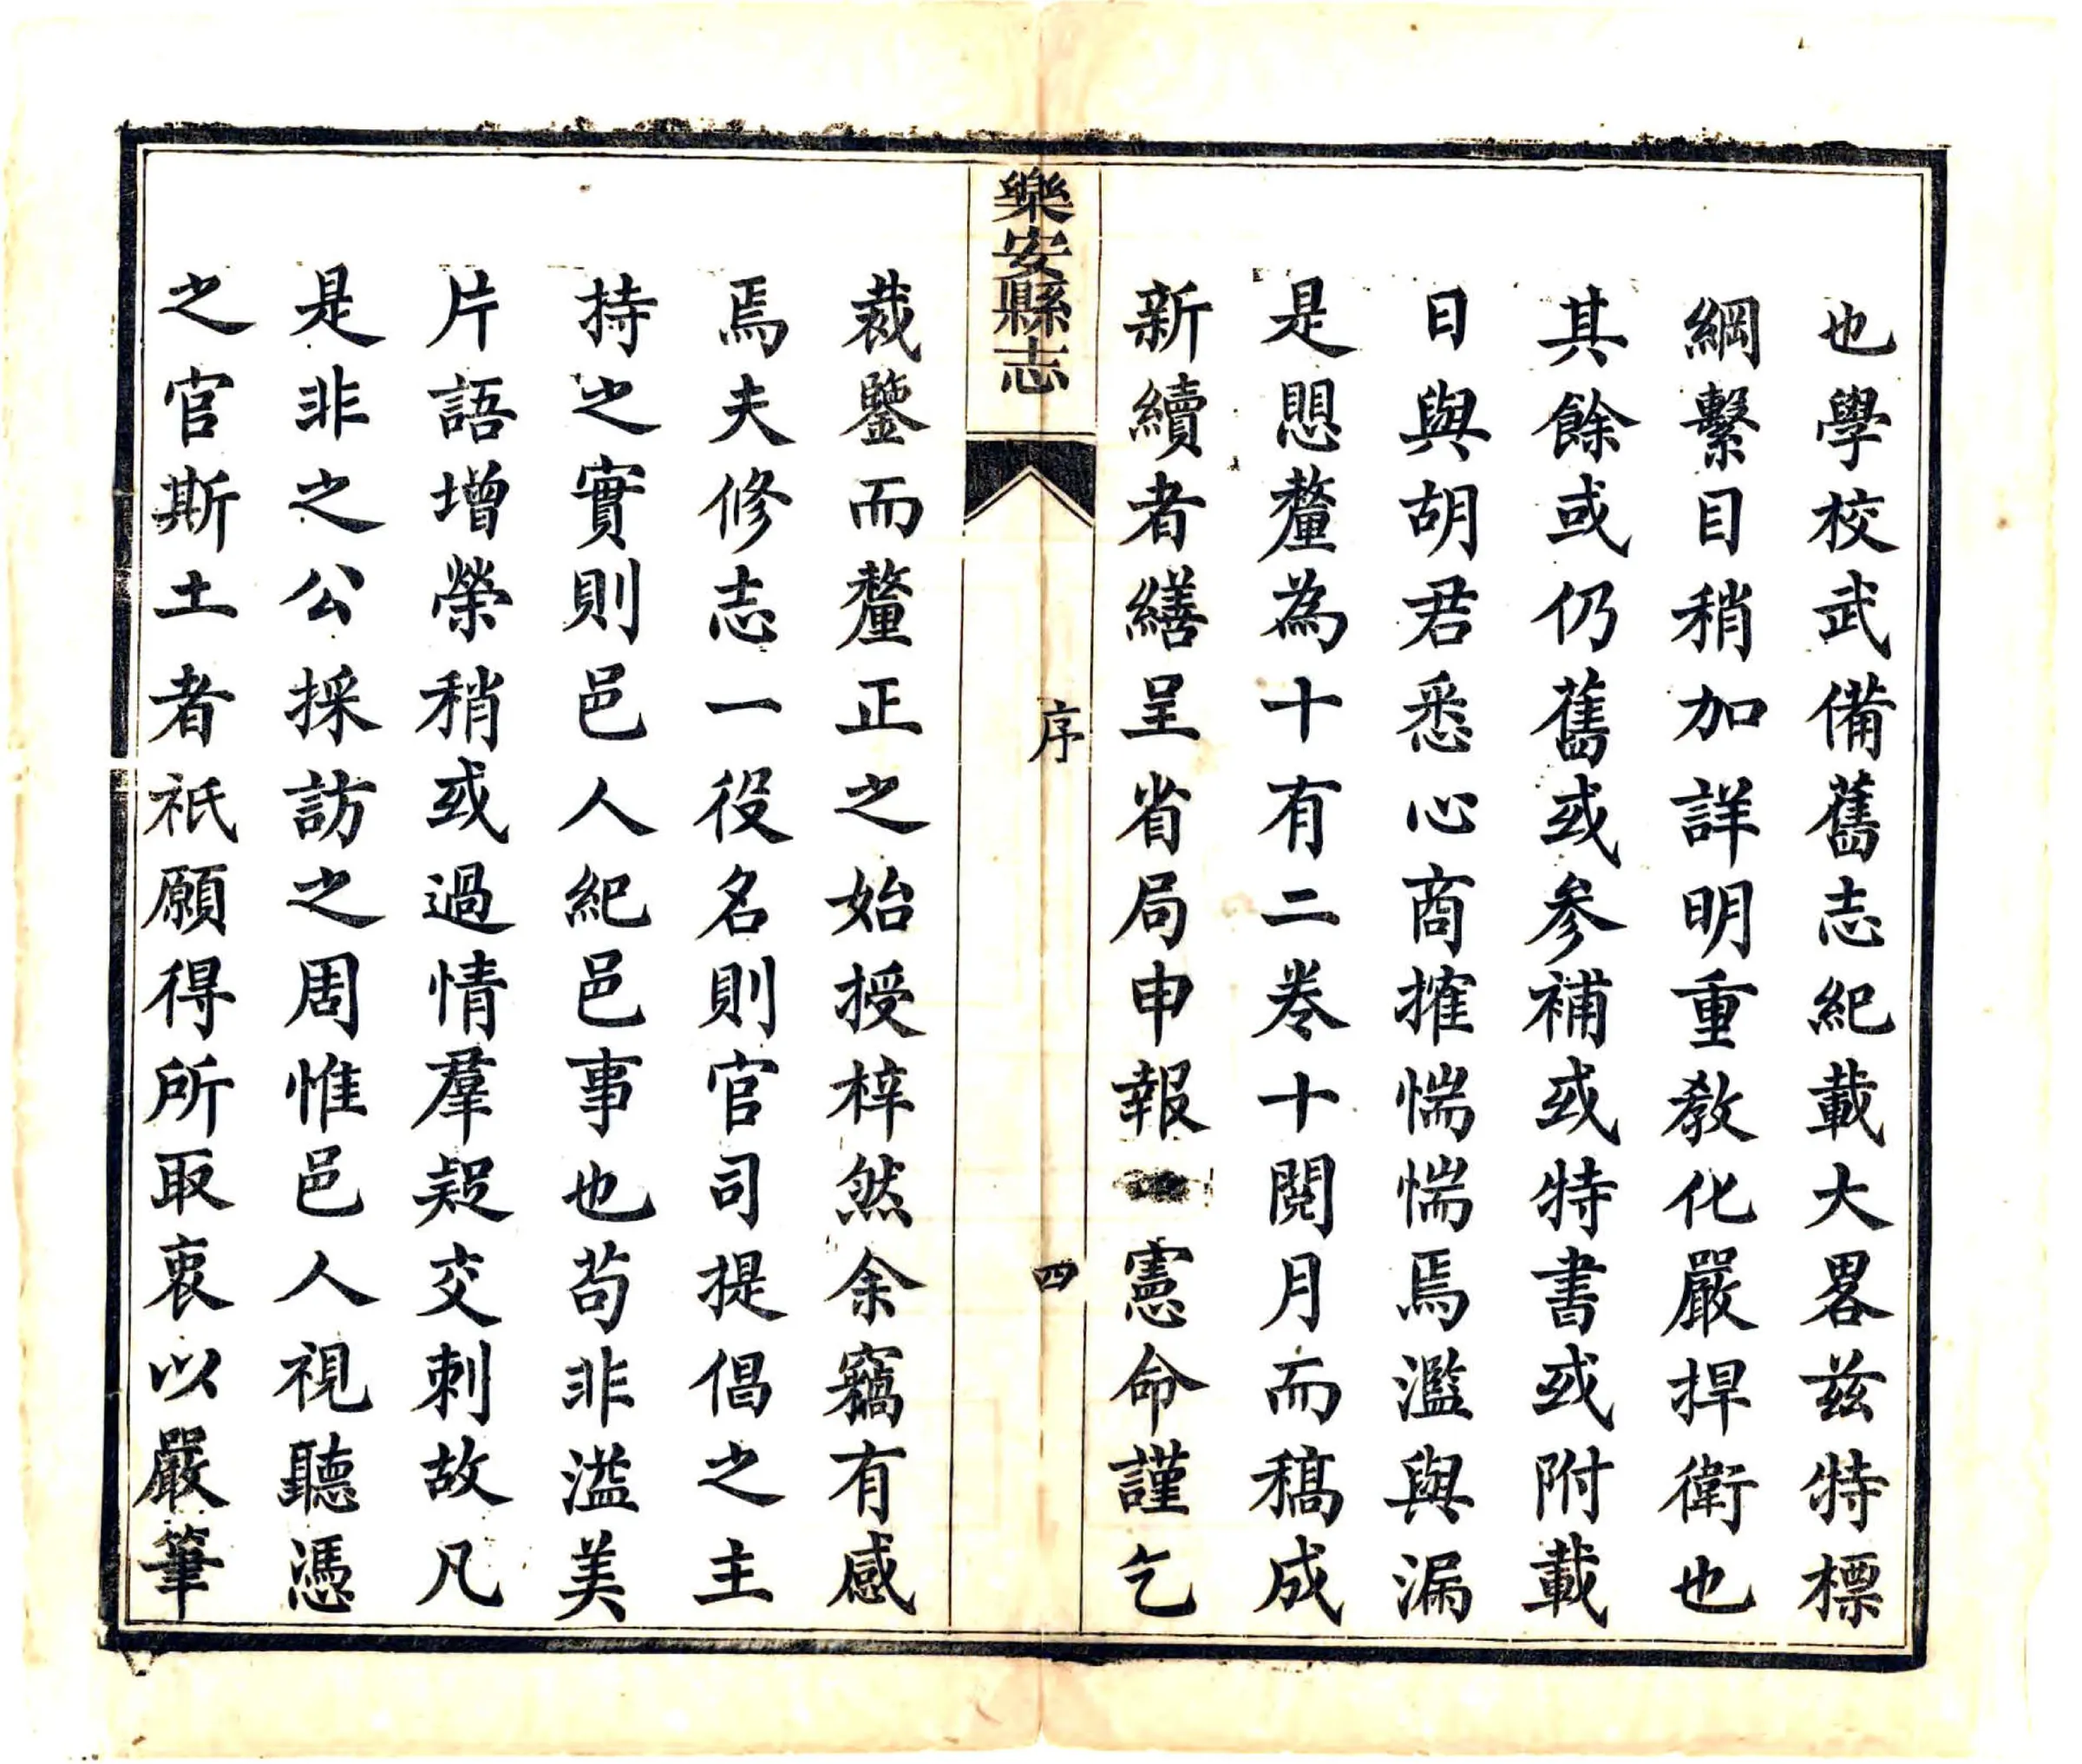 也學校武備舊志紀載大畧茲特標
綱繫目稍加詳明重教化嚴捍衛也
其餘或仍舊或參補或特書或附載
日與胡君悉心商搉惴惴焉濫與漏
是愳釐為十有二卷十閱月而稿成
新續者繕呈省局申報 憲命謹乞
樂安縣志
序
四
裁鑒而釐正之始授梓然余竊有感
焉夫修志一役名則官司提倡之主
持之實則邑人紀邑事也苟非溢美
片語增榮稍或過情羣疑交刺故凡
是非之公採訪之周惟邑人視聽憑
之官斯土者祇願得所取衷以嚴筆